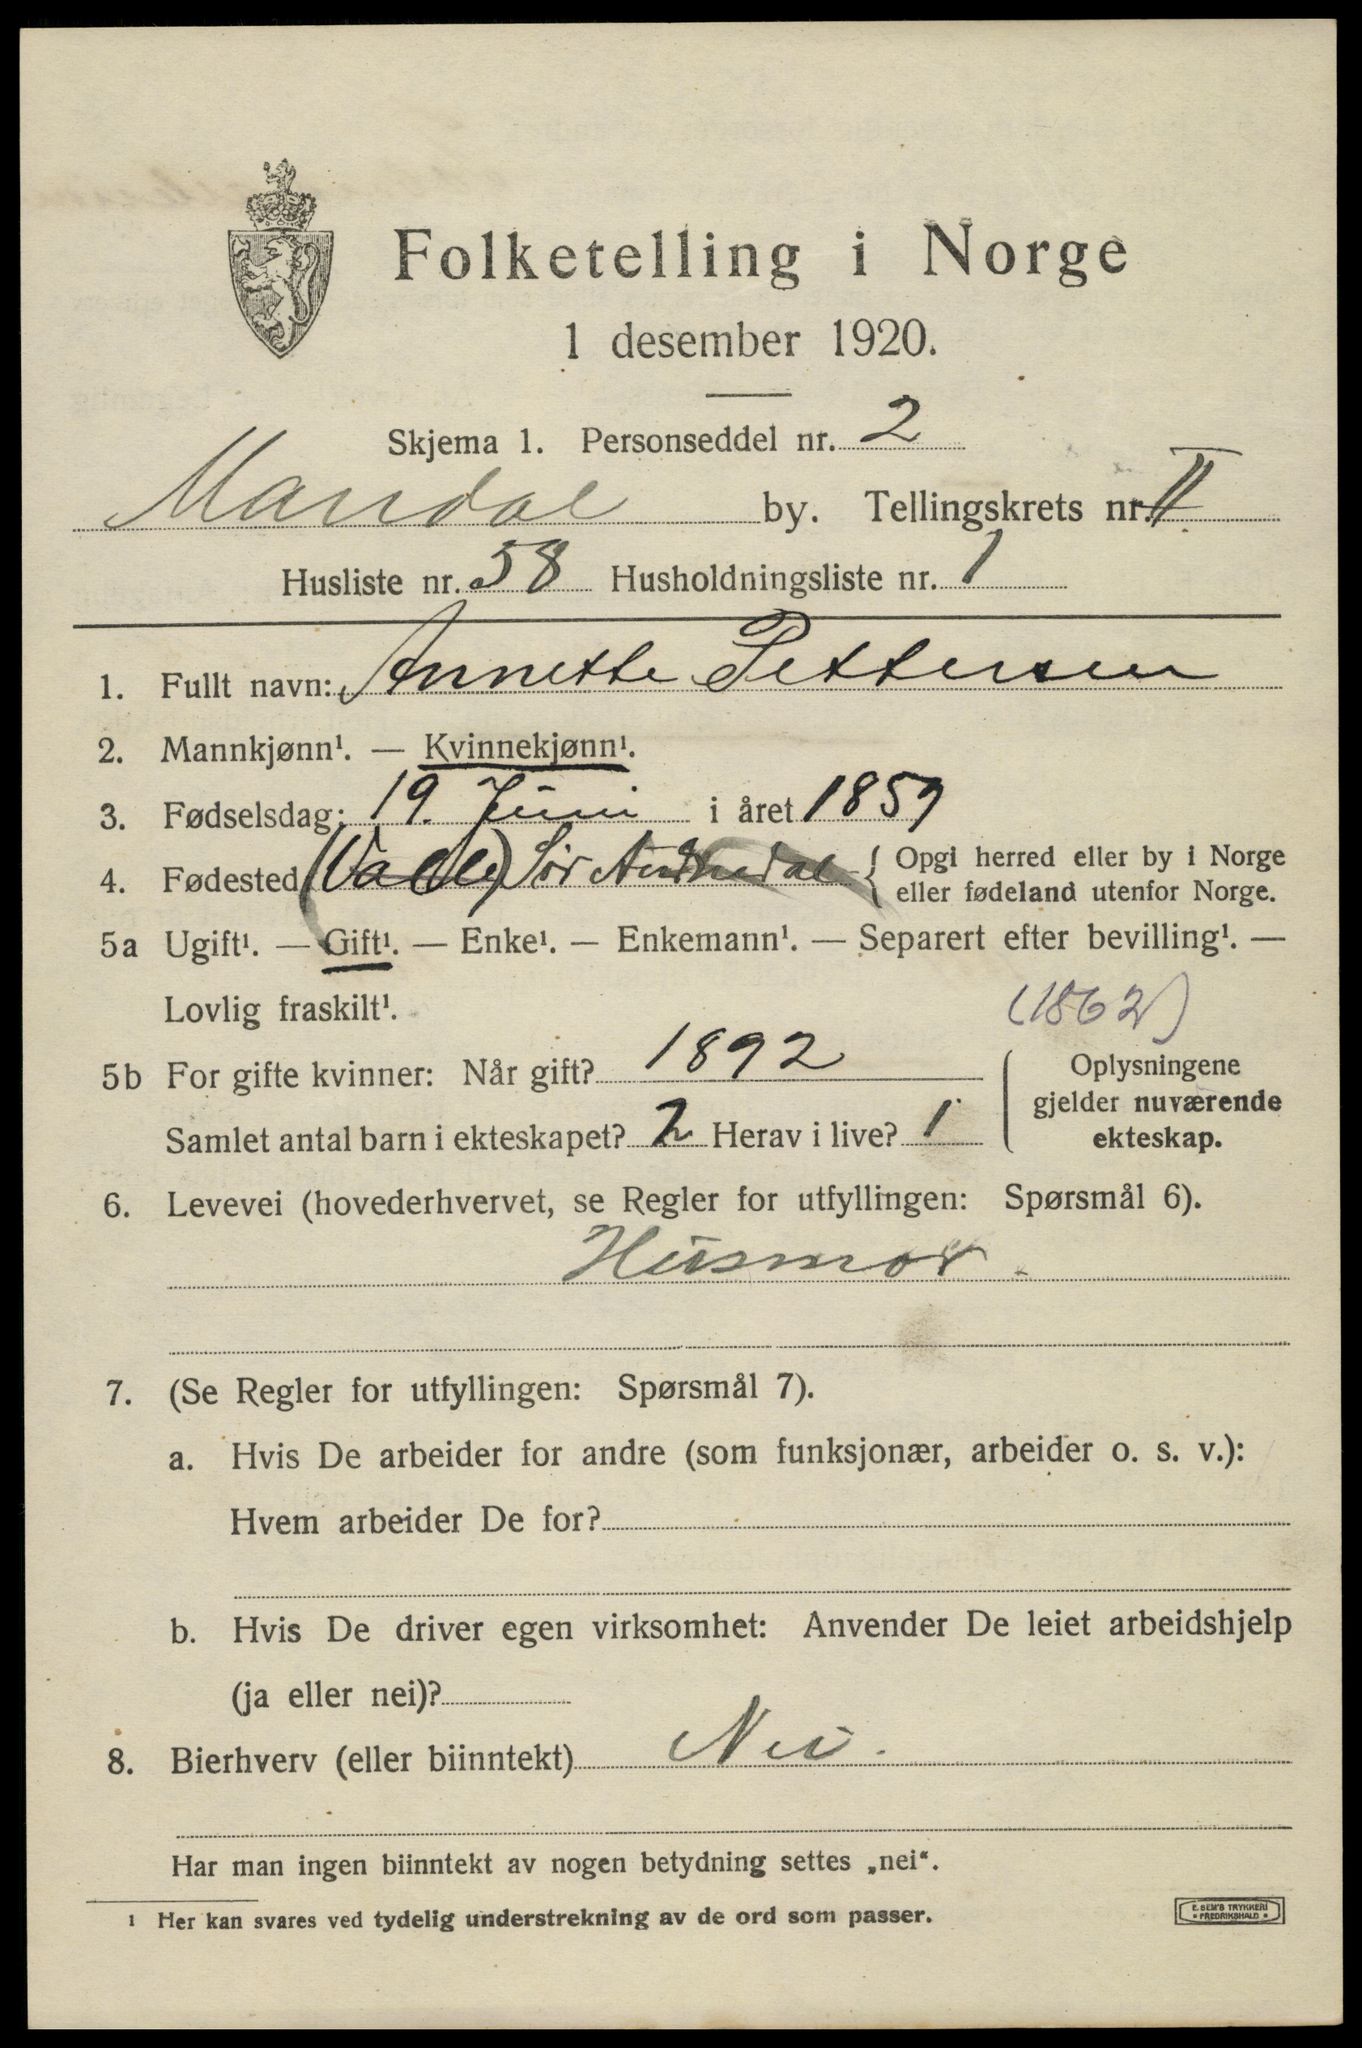 Folketelling i Norge
1 desember 1920.
Skjema 1. Personseddel nr. 2
Mandal by. Tellingskrets nr. II
Husliste nr. 58 Husholdningsliste nr. 1
1. Fullt navn: Annette Pettersen
2. Mannkjønn¹. — Kvinnekjønn¹.
3. Fødselsdag: 19. Juni i året 1859
4. Fødested (Valle) Sør Audnedal { Opgi herred eller by i Norge
eller fødeland utenfor Norge.
5a Ugift¹. — Gift¹. — Enke¹. — Enkemann¹. — Separert efter bevilling¹. —
Lovlig fraskilt¹.
(1862)
5b For gifte kvinner: Når gift? 1892
Samlet antal barn i ekteskapet? 2 Herav i live? 1
Oplysningene
gjelder nuværende
ekteskap.
6. Levevei (hovederhvervet, se Regler for utfyllingen: Spørsmål 6).
Husmor.
7. (Se Regler for utfyllingen: Spørsmål 7).
a. Hvis De arbeider for andre (som funksjonær, arbeider o. s. v.):
Hvem arbeider De for?
b. Hvis De driver egen virksomhet: Anvender De leiet arbeidshjelp
(ja eller nei)?
8. Bierhverv (eller biinntekt) Nei.
Har man ingen biinntekt av nogen betydning settes „nei“.
¹ Her kan svares ved tydelig understrekning av de ord som passer.
E. SEM'S TRYKKERI
• FREDRIKSHALD •